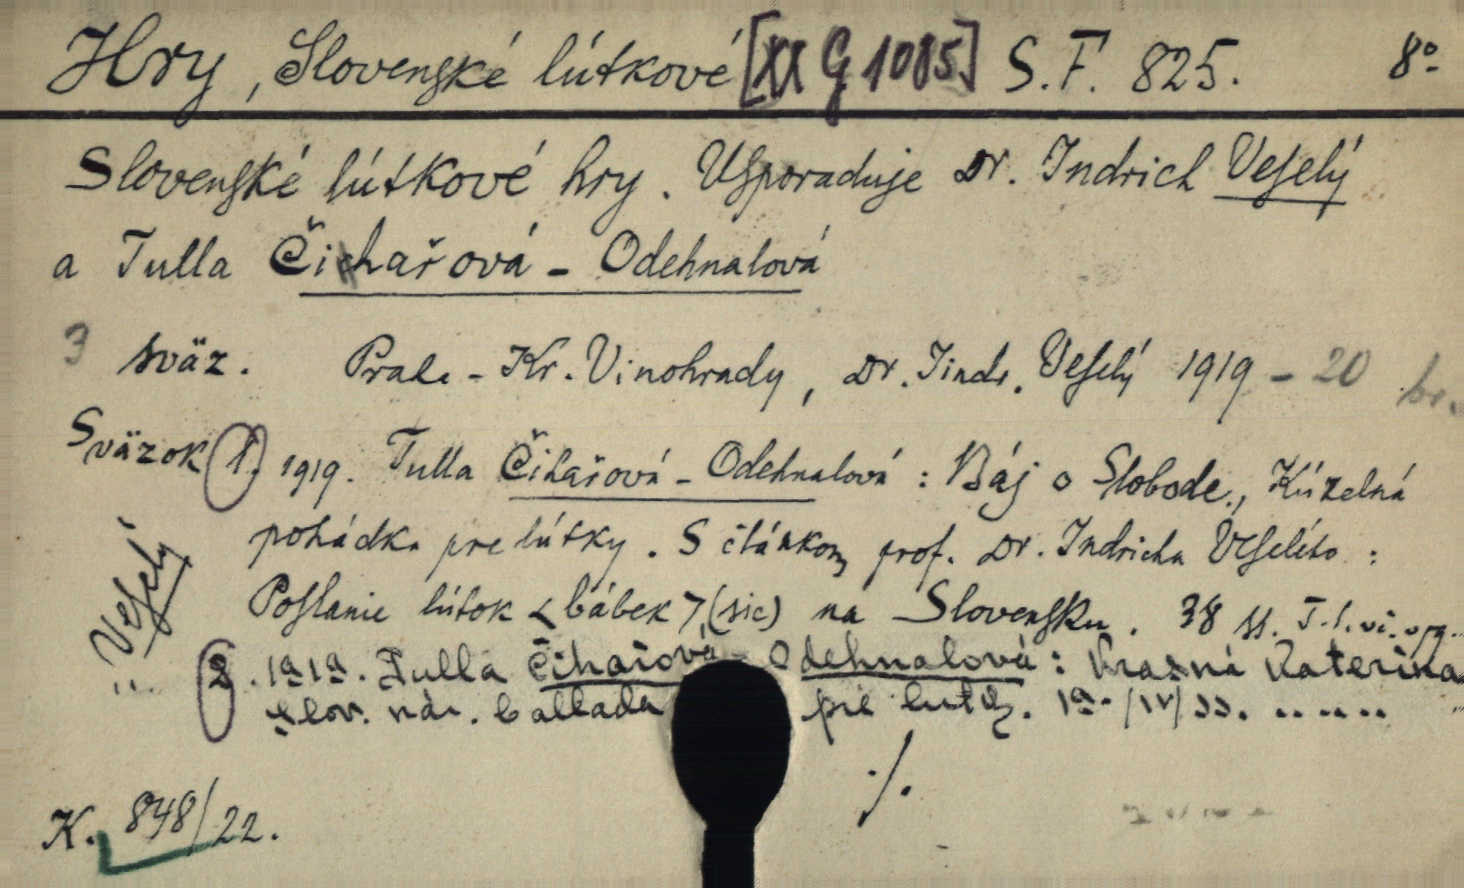 Hry, Slovenské lútkové [XX G 1085] S.F. 825. 8º
Slovenské lútkové hry. Usporaduje Dr. Indrich Veselý
a Tulla Čihařová - Odehnalová
3 sväz. Praha - Kr. Vinohrady, Dr. Jindr. Veselý 1919 - 20 br.
Sväzok 1. 1919. Tulla Čihařová - Odehnalová: Báj o Slobode, Kúzelná
pohádka pre lútky. S článkom prof. Dr. Indricha Veselého:
Poslanie lútok < bábek > (sic) na Slovensku. 38 ss.
Veselý
2. 1919. Tulla Čihařová - Odehnalová: Krasná Katerina
slov. nár. ballada pre lutky. 19./IV/ss.
./.
K. 848/22.